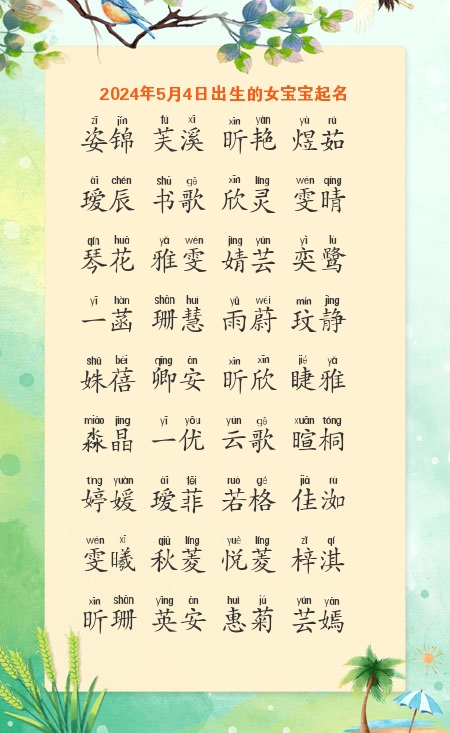 2024年5月4日出生的女宝宝起名
zī jǐn fú xī xīn yàn yù rú
姿锦 芙溪 昕艳 煜茹
ài chén shū gē xīn líng wén qíng
瑷辰 书歌 欣灵 雯晴
qín huā yǎ wén jìng yún yì lù
琴花 雅雯 婧芸 奕鹭
yī hàn shān huì yǔ wèi mín jìng
一菡 珊慧 雨蔚 玟静
shū bèi qīng ān xīn xīn jié yǎ
姝蓓 卿安 昕欣 睫雅
miǎo jīng yī yōu yún gē xuān tóng
淼晶 一优 云歌 暄桐
tíng yuàn ài fēi ruò gé jiā rù
婷媛 瑷菲 若格 佳洳
wén xī qiū líng yuè líng zǐ qí
雯曦 秋菱 悦菱 梓淇
xīn shān yīng ān huì jú yún yān
昕珊 英安 惠菊 芸嫣